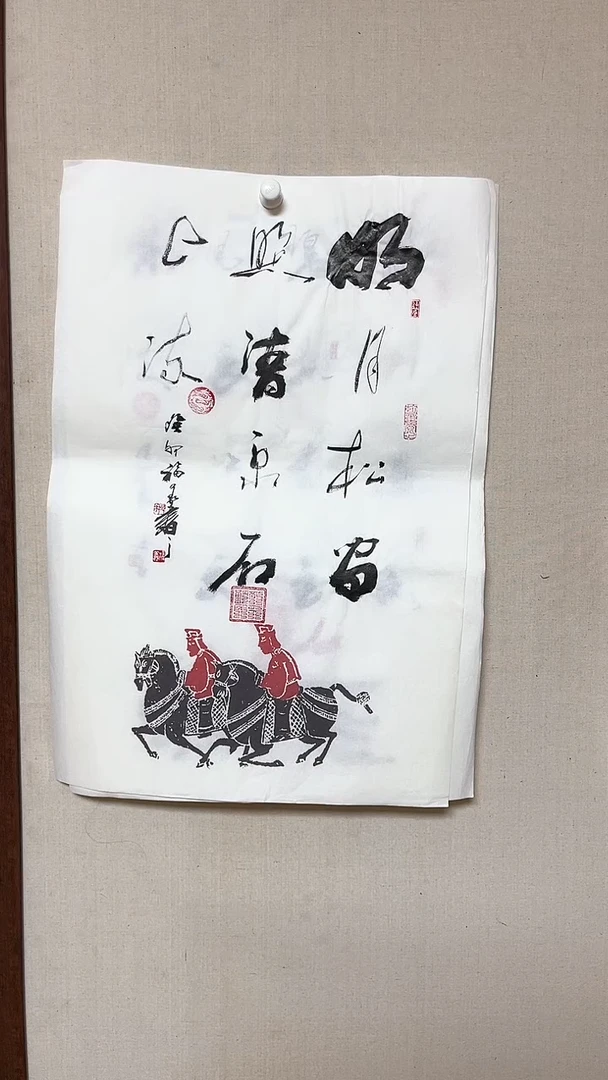 明月松間
照清泉石
上流
癸卯